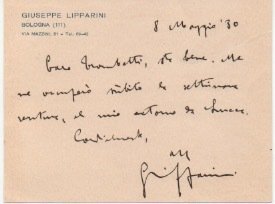 GIUSEPPE LIPPARINI
BOLOGNA (111).
VIA MAZZINI, 51 - TEL. 69-43
8 Maggio '30
Caro Trombetti, sta bene. Me
ne occuperò subito la settimana
ventura, al mio ritorno da Lucca.
Cordialmente,
GLipparini